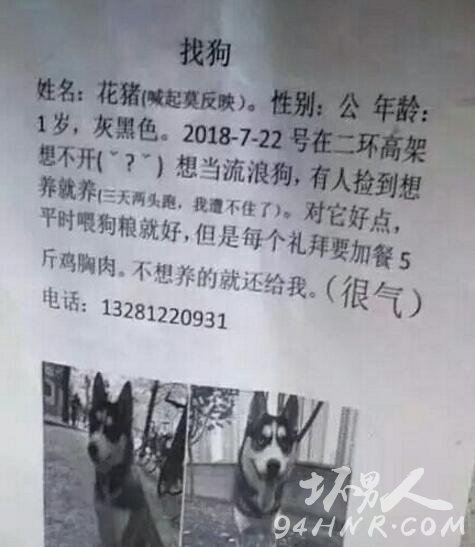 找狗
姓名：花猪(喊起莫反映)。性别：公 年龄：
1岁，灰黑色。2018-7-22 号在二环高架
想不开(ˇ?ˇ) 想当流浪狗，有人捡到想
养就养(三天两头跑，我遭不住了)。对它好点，
平时喂狗粮就好，但是每个礼拜要加餐 5
斤鸡胸肉。不想养的就还给我。（很气）
电话：13281220931
坏男人
94HNR.COM